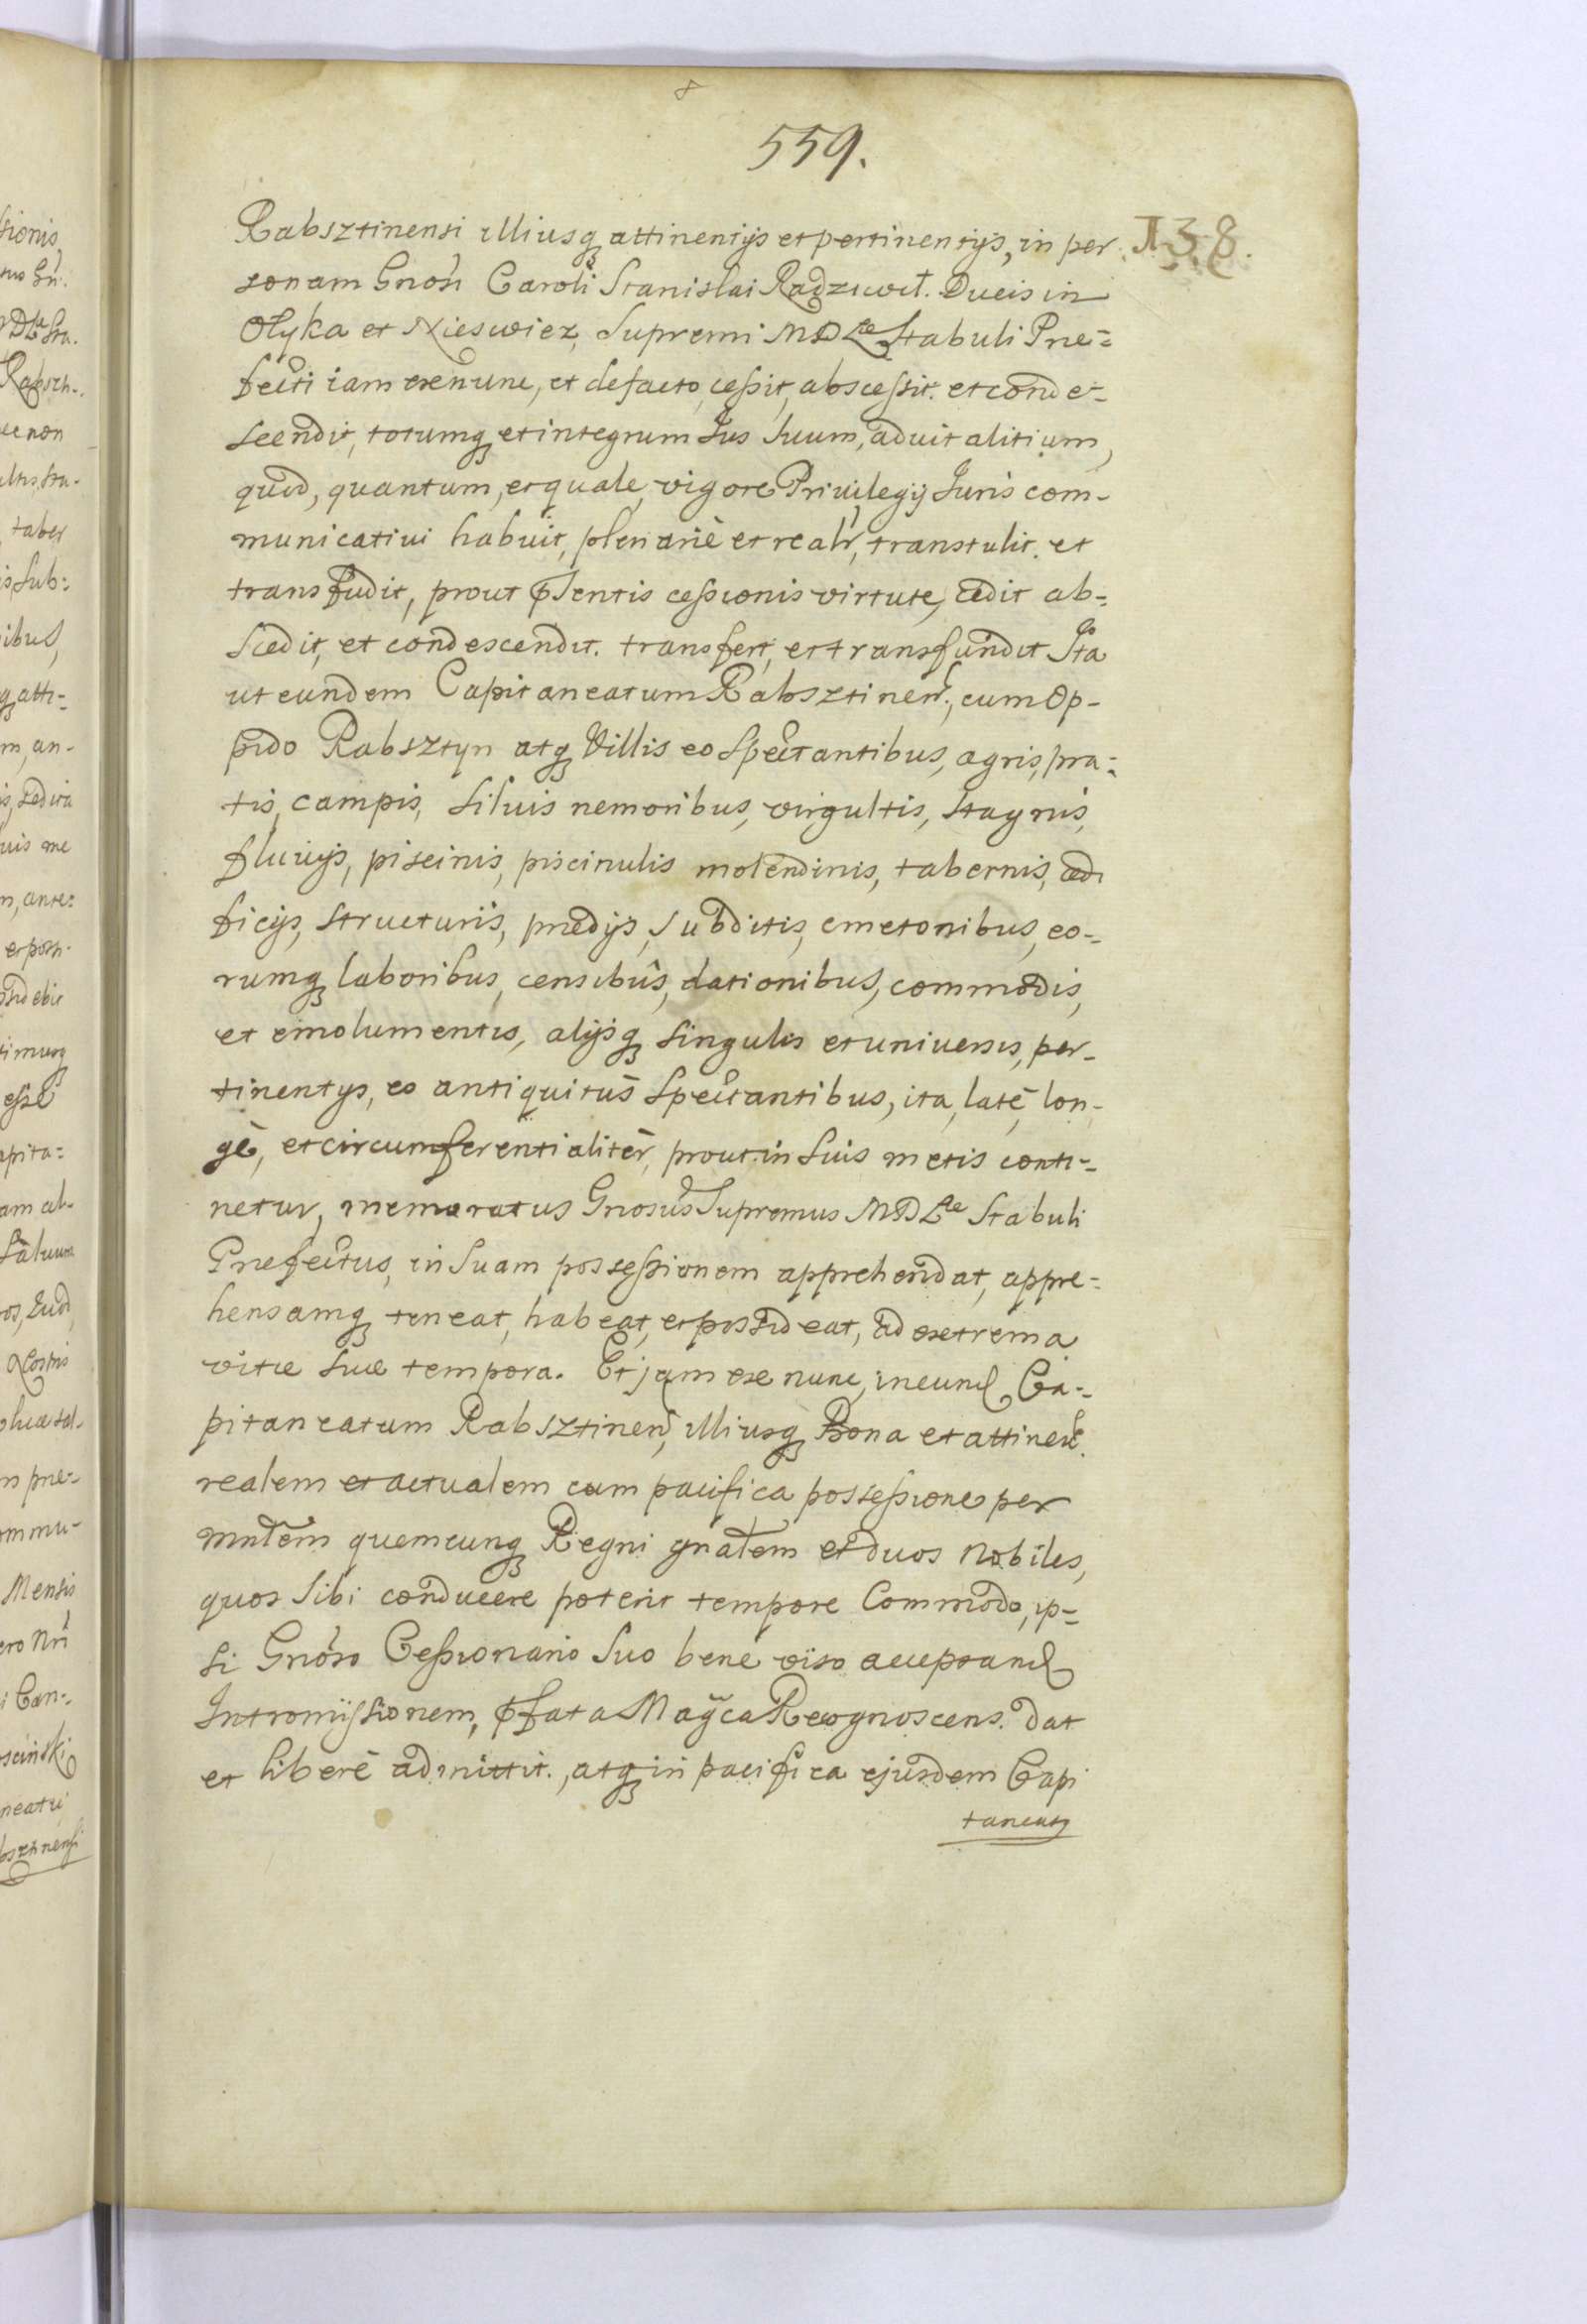 559.
138.
Rabsztinensi illiusq attinentijs et pertinentijs, in per
sonam Gnosi Caroli Stanislai Radziwił. Ducis in
Ołyka et Nieswiez, Supremi MDLæ Stabuli Præ=
fecti iam exnunc, et defacto, cessit, abscessit. et conde-
scendit, totumq et integrum Jus suum, aduitalitium,
quod, quantum, et quale, vigore Priuilegij Juris com-
municatiui habuit, plenariè et realr, transtulit. et
transfudit, prout pSentis cessionis virtute, cedit ab=
scedit, et condescendit. transfert, et transfundit Ita
ut eundem Capitaneatum Rabsztinen., cum Op-
pido Rabsztyn atq Villis eo Spectantibus, agris, pra=
tis, campis, siluis nemoribus, virgultis, stagnis,
fluuijs, piscinis, piscinulis molendinis, tabernis, ædi
ficijs, structuris, prædijs, subditis, cmetonibus, eo-
rumq laboribus, censibus, dationibus, commodis,
et emolumentis, alijsq singulis et universis, per-
tinentijs, eo antiquitus Spectantibus, ita, latè, lon-
gè, et circumferentialitèr, prout in suis metis conti-
netur, memoratus Gnosus Supremus MDLæ Stabuli
Præfectus, in suam possessionem apprehendat, appre=
hensamq teneat, habeat, et possideat, ad extrema
vitæ suæ tempora. Et jam ex nunc, in eund Ca-
pitaneatum Rabsztinen, illiusq Bona et attinen.
realem et actualem cum pacifica possessione per
Mntem quemcunq Regni gnatem et duos Nobiles,
quos sibi conducere poterit tempore Commodo, ip=
si Gnoso Cessionario suo bene viso acceptand
Intromissionem, pfata Magca Recognoscens. dat
et liberè admittit., atq in pacifica ejusdem Capi
taneatq